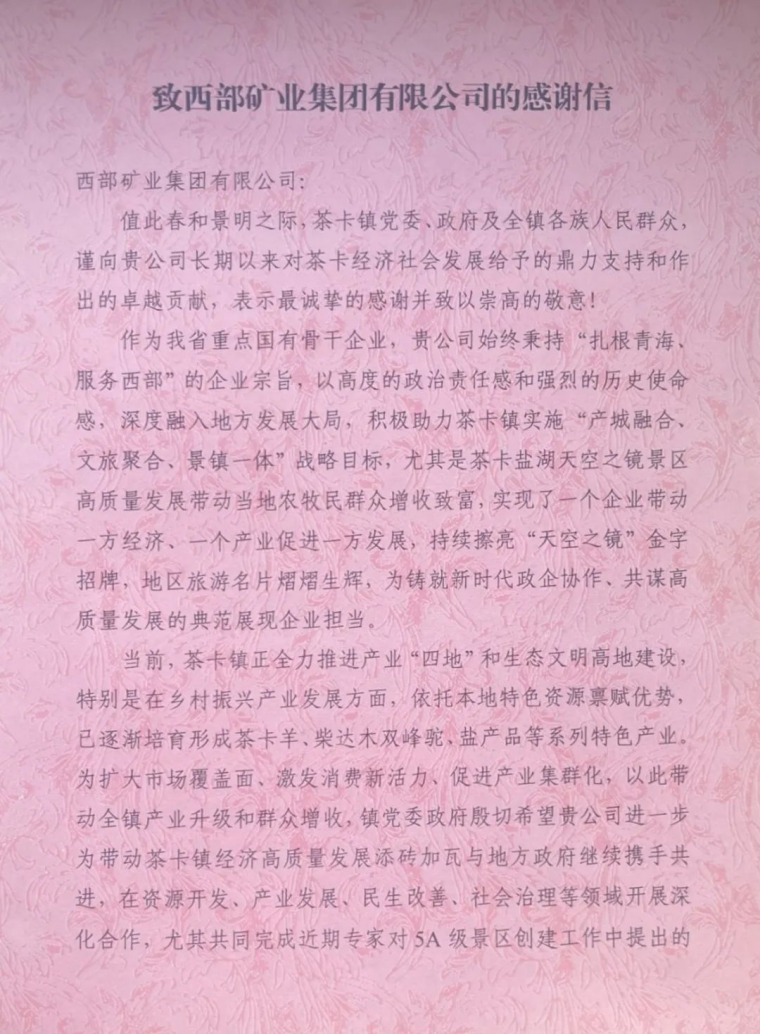 致西部矿业集团有限公司的感谢信
西部矿业集团有限公司:
值此春和景明之际,茶卡镇党委、政府及全镇各族人民群众,
谨向贵公司长期以来对茶卡经济社会发展给予的鼎力支持和作
出的卓越贡献，表示最诚挚的感谢并致以崇高的敬意!
作为我省重点国有骨干企业，贵公司始终秉持“扎根青海、
服务西部”的企业宗旨，以高度的政治责任感和强烈的历史使命
感，深度融入地方发展大局，积极助力茶卡镇实施“产城融合、
文旅聚合、景镇一体”战略目标，尤其是茶卡盐湖天空之镜景区
高质量发展带动当地农牧民群众增收致富,实现了一个企业带动
一方经济、一个产业促进一方发展，持续擦亮“天空之镜”金字
招牌，地区旅游名片熠熠生辉，为铸就新时代政企协作、共谋高
质量发展的典范展现企业担当。
当前，茶卡镇正全力推进产业“四地”和生态文明高地建设，
特别是在乡村振兴产业发展方面，依托本地特色资源禀赋优势，
已逐渐培育形成茶卡羊、柴达木双峰驼、盐产品等系列特色产业。
为扩大市场覆盖面、激发消费新活力、促进产业集群化，以此带
动全镇产业升级和群众增收,镇党委政府殷切希望贵公司进一步
为带动茶卡镇经济高质量发展添砖加瓦与地方政府继续携手共
进，在资源开发、产业发展、民生改善、社会治理等领域开展深
化合作，尤其共同完成近期专家对5A级景区创建工作中提出的